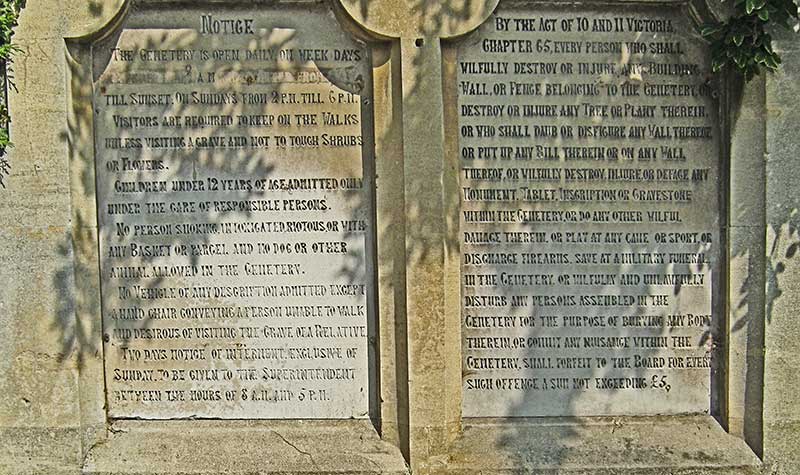 Notice
The Cemetery is open daily, on week days
A.M.
till Sunset. On Sundays from 2 P.M. till 6 P.M.
Visitors are required to keep on the Walks
unless visiting a grave and not to touch Shrubs
or Flowers.
Children under 12 years of age, admitted only
under the care of responsible persons.
No person smoking, intoxicated, riotous, or with
any Basket or Parcel and no dog or other
animal allowed in the Cemetery.
No Vehicle of any description admitted except
a hand chair conveying a person unable to walk
and desirous of visiting the Grave of a Relative.
Two days notice of interment, exclusive of
Sunday, to be given to the Superintendent
between the hours of 8 A.M. and 5 P.M.
By the Act of 10 and 11 Victoria,
Chapter 65, every person who shall
wilfully destroy or injure any Building,
Wall, or Fence belonging to the Cemetery, or
destroy or injure any Tree or Plant therein,
or who shall daub or disfigure any Wall thereof
or put up any Bill therein or on any Wall
thereof, or wilfully destroy, injure, or deface any
Monument, Tablet, Inscription or Gravestone
within the Cemetery, or do any other wilful
damage therein, or play at any game or sport, or
discharge firearms, save at a military funeral
in the Cemetery, or wilfully and unlawfully
disturb any persons assembled in the
Cemetery for the purpose of burying any Body
therein, or commit any nuisance within the
Cemetery, shall forfeit to the Board for every
such offence a sum not exceeding £5.